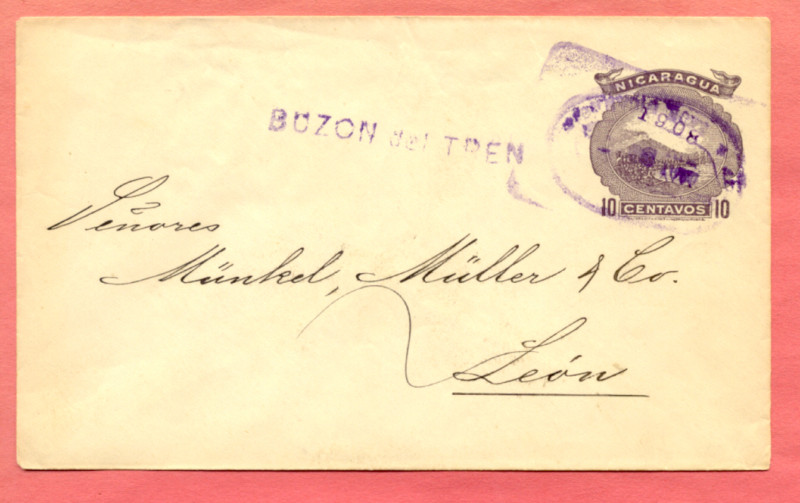 NICARAGUA
BUZON del TREN
10 CENTAVOS 10
Señores
Münkel, Müller & Co.
León